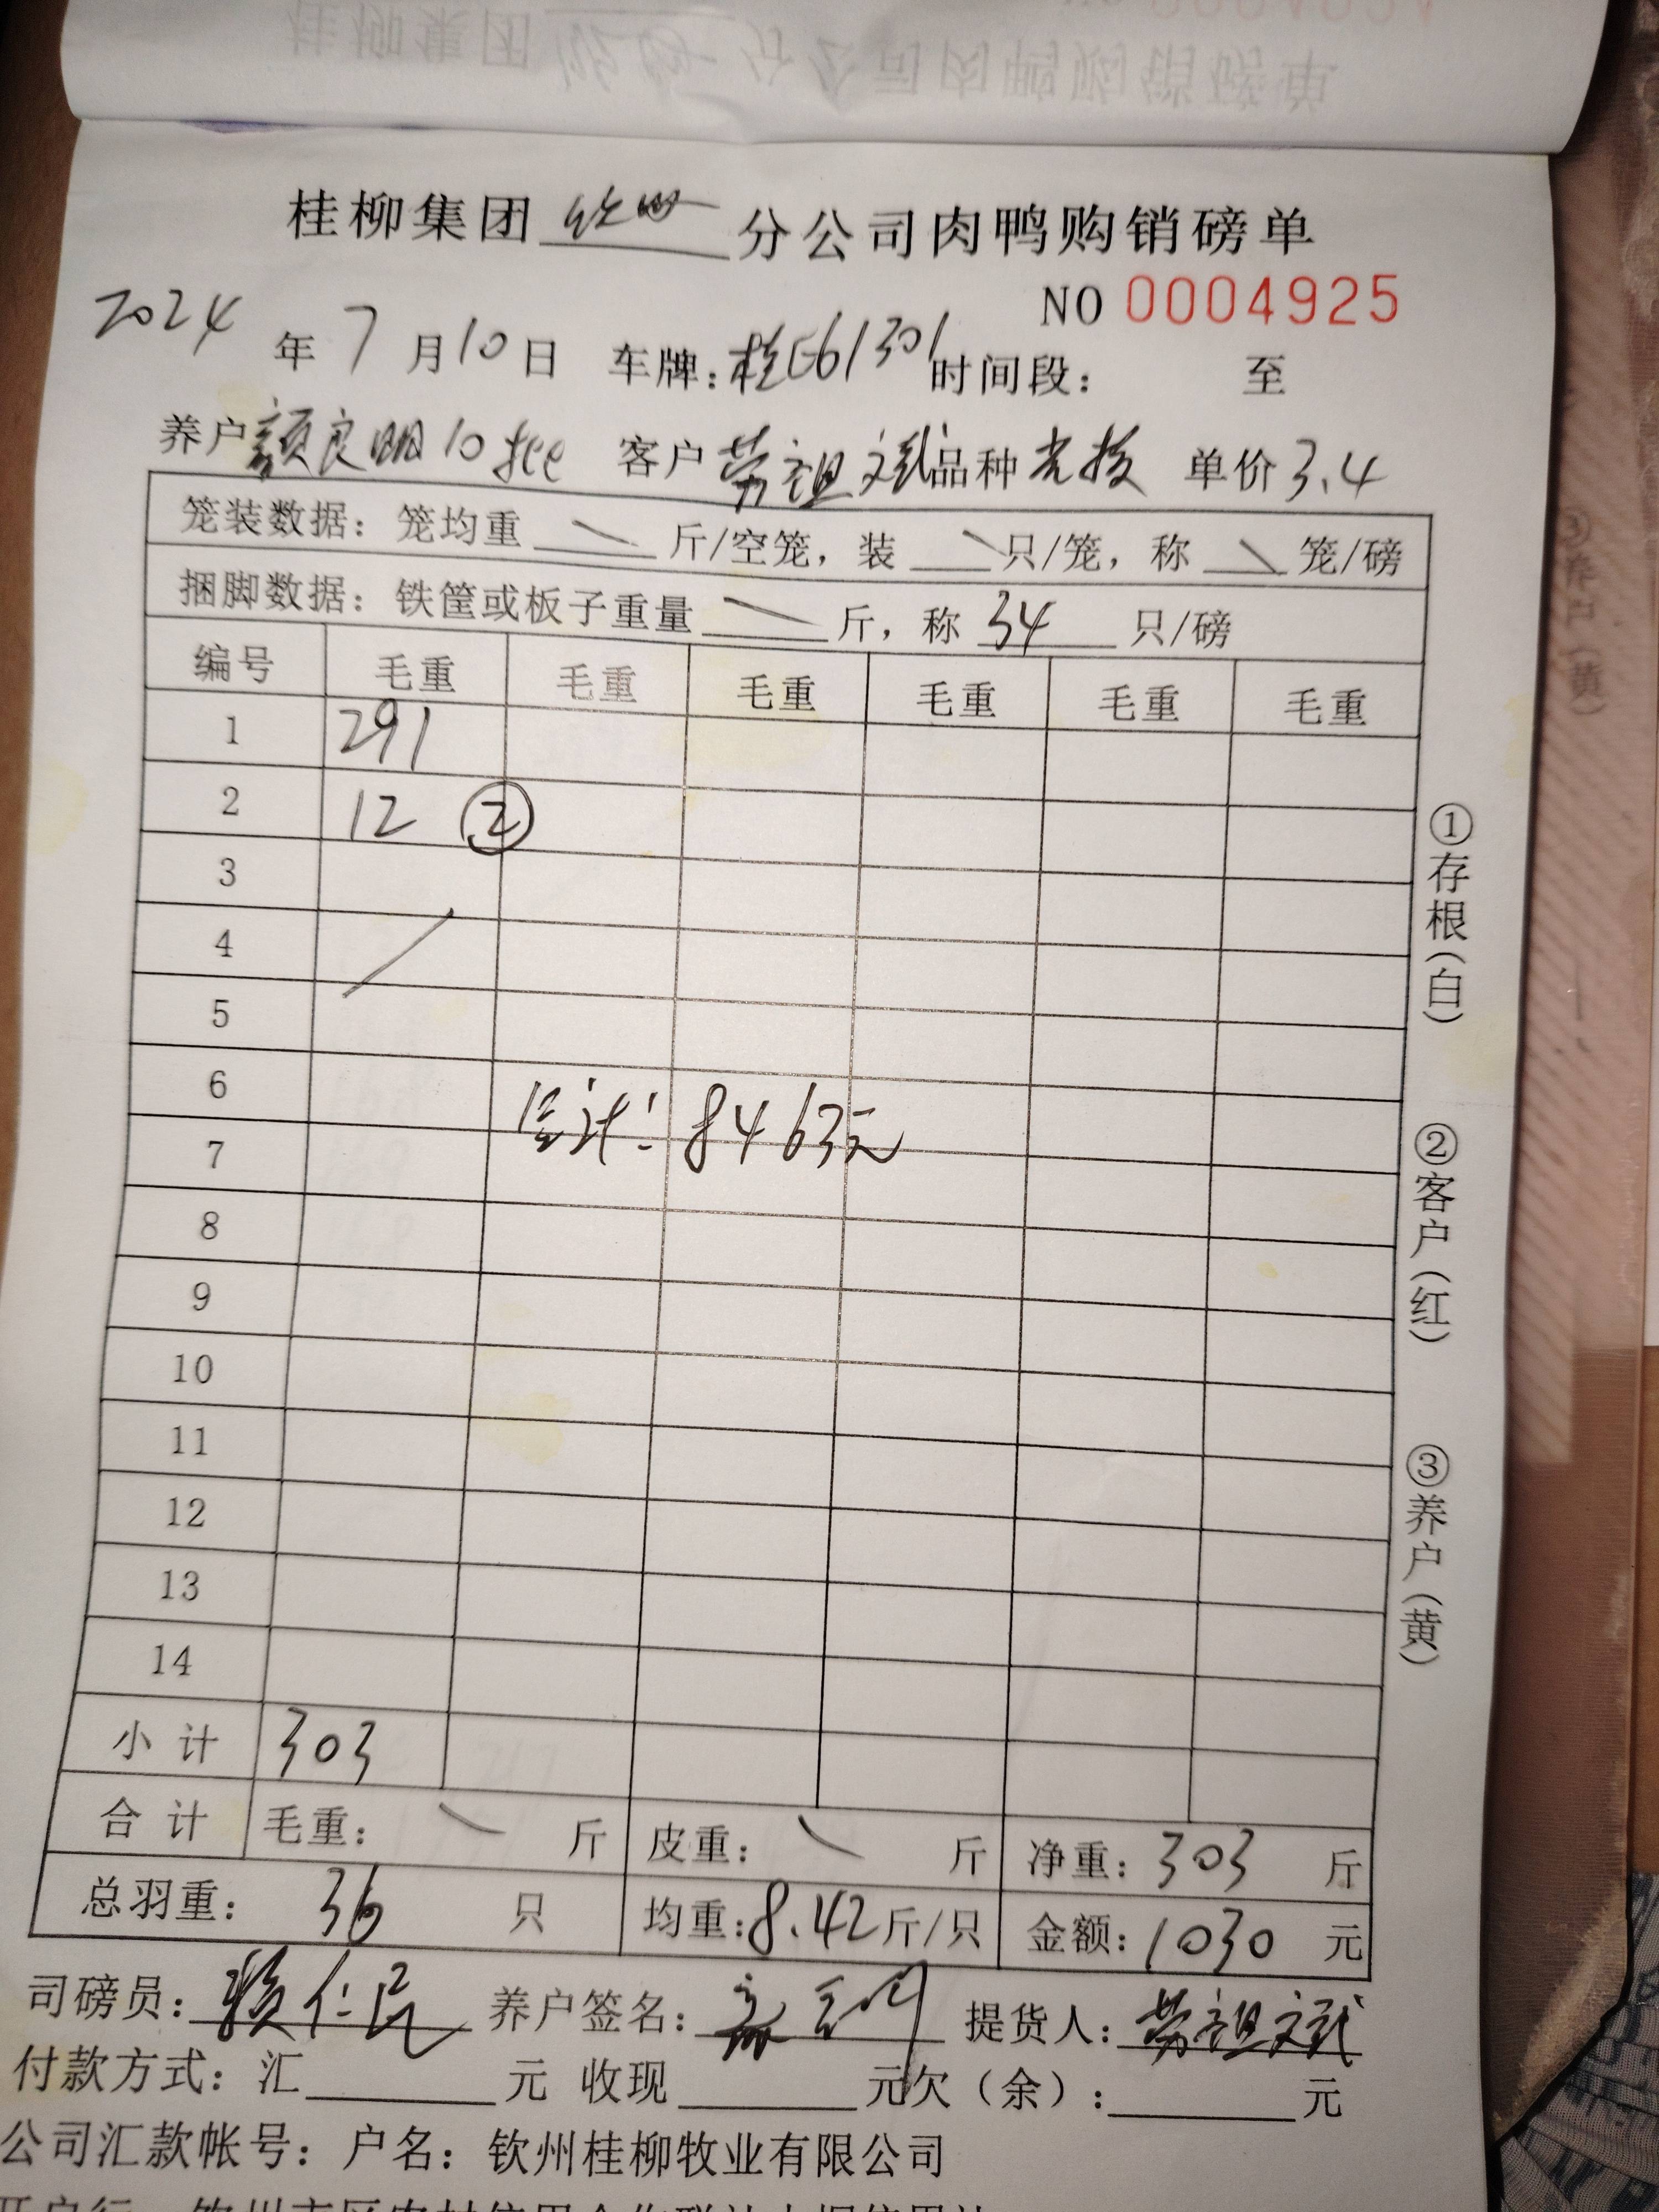 桂柳集团 钦州 分公司肉鸭购销磅单
NO 0004925
2024 年 7 月 10 日 车牌: 桂E61301 时间段: 至
养户 颜良明10批 客户 劳祖文斌 品种 单价 3.4
笼装数据: 笼均重 \ 斤/空笼, 装 \ 只/笼, 称 \ 笼/磅
捆脚数据: 铁筐或板子重量 \ 斤, 称 34 只/磅
编号 毛重 毛重 毛重 毛重 毛重 毛重
1 291
2 12 ②
3
4
5
6
总计: 8463元
7
8
9
10
11
12
13
14
小计 303
合计 毛重: \ 斤 皮重: \ 斤 净重: 303 斤
总羽重: 36 只 均重: 8.42 斤/只 金额: 1030 元
司磅员: 赖仁民 养户签名: 提货人: 劳祖文斌
付款方式: 汇 元 收现 元 欠(余): 元
公司汇款帐号: 户名: 钦州桂柳牧业有限公司
①存根(白)
②客户(红)
③养户(黄)